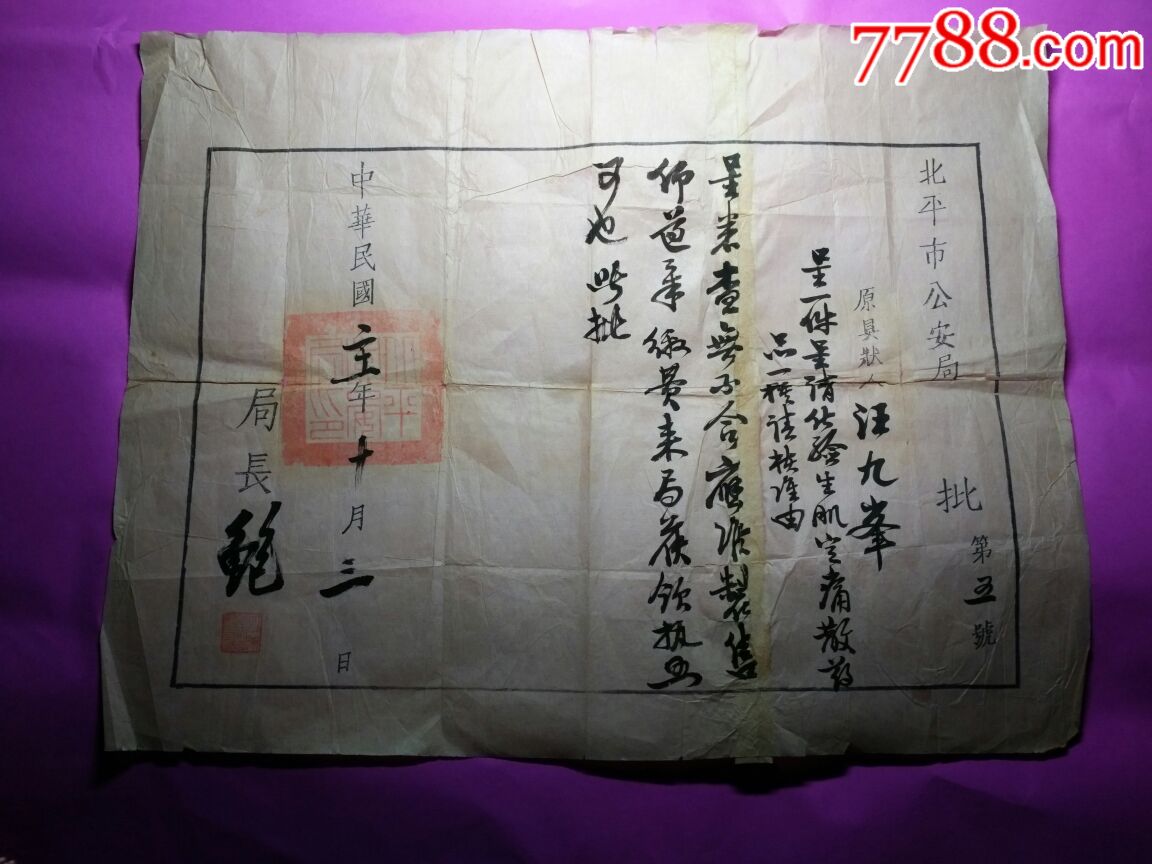 7788.com
北平市公安局 批 第五號
原具狀人 汪九峯
呈一件呈請化驗生肌定痛散藥
品一種請核准由
呈悉查無不合應准製售
仰遵章繳費來局廌領執照
可也此批
中華民國 年十月三日
局長 鮑